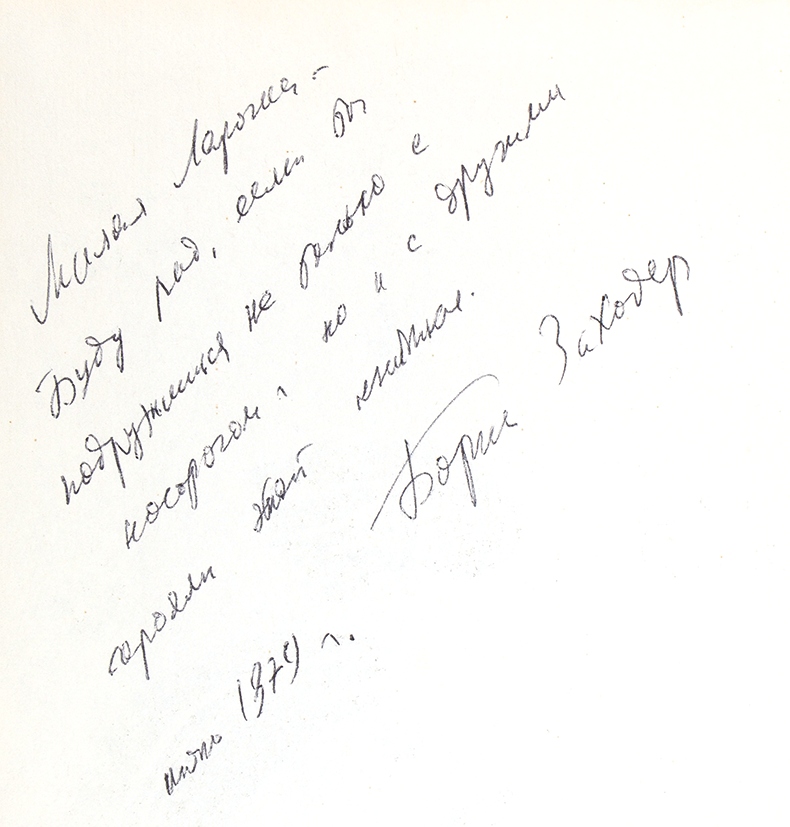 Милая Ларочка, -
Буду рад, если Вы
подружитесь не только с
носорогом, но и с другими
героями этой книжки.
Борис Заходер
1979 г.